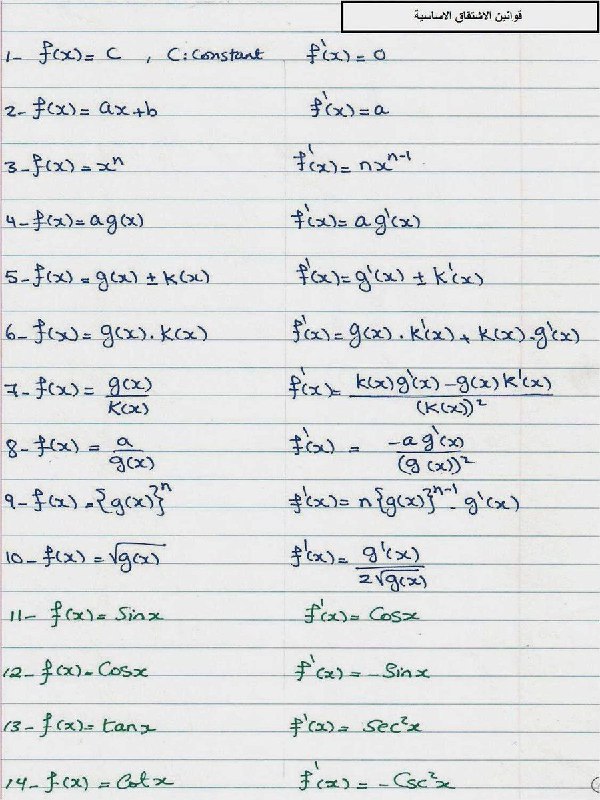 قوانين الاشتقاق الاساسية
1- f(x) = C , C: Constant f'(x) = 0
2- f(x) = ax+b f'(x) = a
3- f(x) = xⁿ f'(x) = nxⁿ⁻¹
4- f(x) = a g(x) f'(x) = a g'(x)
5- f(x) = g(x) ± k(x) f'(x) = g'(x) ± k'(x)
6- f(x) = g(x) . k(x) f'(x) = g(x) . k'(x) + k(x) . g'(x)
7- f(x) = g(x)/k(x) f'(x) = k(x)g'(x) - g(x)k'(x)/(k(x))²
8- f(x) = a/g(x) f'(x) = -a g'(x)/(g(x))²
9- f(x) = {g(x)}ⁿ f'(x) = n{g(x)}ⁿ⁻¹ . g'(x)
10- f(x) = √g(x) f'(x) = g'(x)/2√g(x)
11- f(x) = Sinx f'(x) = Cosx
12- f(x) = Cosx f'(x) = -Sinx
13- f(x) = tanx f'(x) = Sec²x
14- f(x) = Cotx f'(x) = -Csc²x